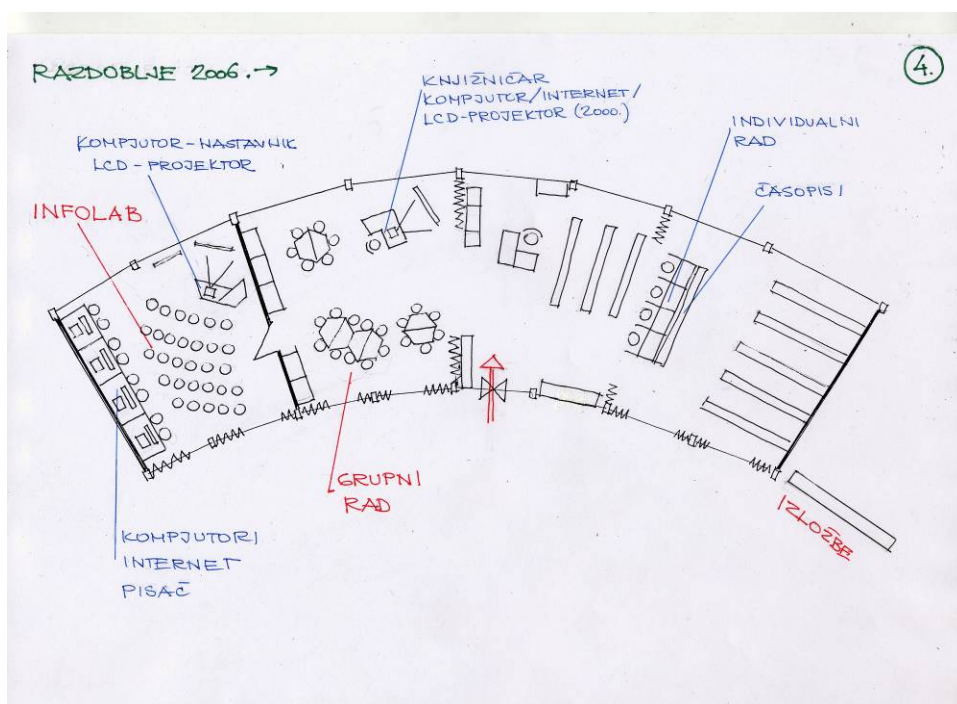 RAZDOBLJE 2006.→
4.
KNJIŽNIČAR
KOMPJUTOR/INTERNET/
LCD-PROJEKTOR (2000.)
INDIVIDUALNI
RAD
KOMPJUTOR-NASTAVNIK
LCD-PROJEKTOR
ČASOPISI
INFOLAB
GRUPNI
RAD
IZLOŽBE
KOMPJUTORI
INTERNET
PISAČ